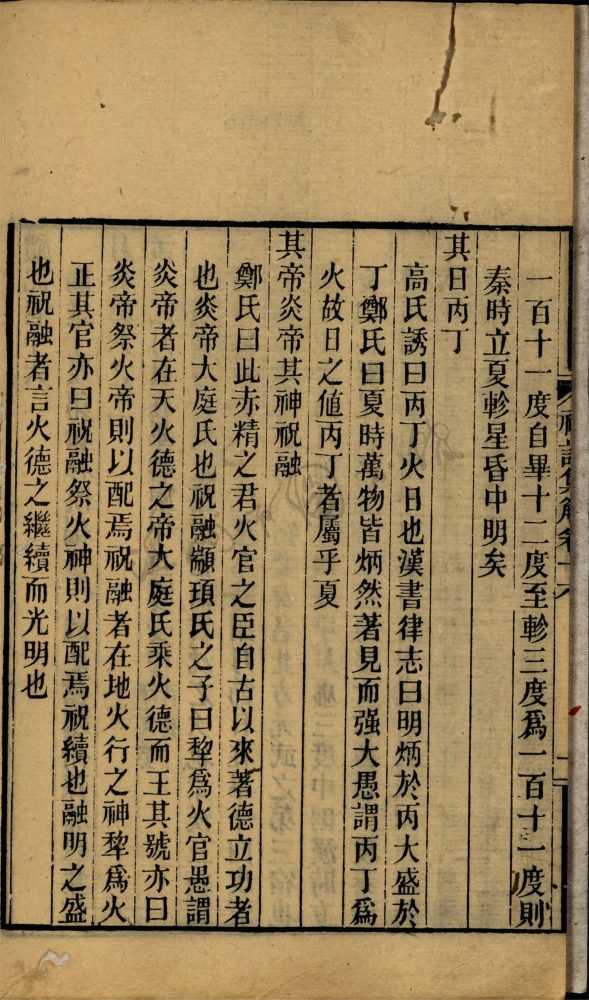 一百十一度自畢十二度至軫三度爲一百十一度則
秦時立夏軫星昏中明矣
其日丙丁
高氏誘曰丙丁火日也漢書律志曰明炳於丙大盛於
丁鄭氏曰夏時萬物皆炳然著見而强大愚謂丙丁爲
火故日之值丙丁者屬乎夏
其帝炎帝其神祝融
鄭氏曰此赤精之君火官之臣自古以來著德立功者
也炎帝大庭氏也祝融顓頊氏之子曰犂爲火官愚謂
炎帝者在天火德之帝大庭氏乘火德而王其號亦曰
炎帝祭火帝則以配焉祝融者在地火行之神犂爲火
正其官亦曰祝融祭火神則以配焉祝續也融明之盛
也祝融者言火德之繼續而光明也